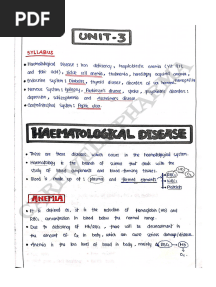 PDF
UNIT-3
SYLLABUS
• Haematological Disease: Iron deficiency, megaloblastic anemia (Vit B12
and folic acid), sickle cell anemia, thalassemia, hereditary acquired anemia,
• Endocrine system: Diabetes, thyroid disease, disorders of sex hormones
• Nervous system: Epilepsy, Parkinson's disease, stroke, psychiatric disorders:
depression, schizophrenia and Alzheimer's disease.
• Gastrointestinal System: Peptic Ulcer
HAEMATOLOGICAL DISEASE
• These are those diseases which occur in the haematological system.
• Haematology is the branch of science that deals with the
study of blood components and blood forming tissues.
• Blood is made up of: plasma and formed elements
RBCs
WBCs
Platelets
ANEMIA
• It is defined as, it is the reduction of Hemoglobin (Hb) and
RBCs concentration in blood below the normal range.
• Due to deficiency of Hb/RBCs, there will be decreased in
the amount of O2 in body, which can cause serious damage/disease.
• Anemia is the low level of blood in body, mainly RBCs
Hb
O2